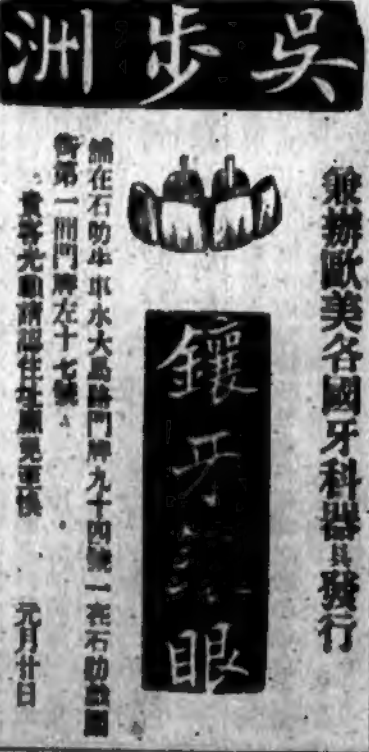 吳步洲
兼辦歐美各國牙科器具發行
鑲牙 眼
舖在石叻牛車水大馬路門牌九十四號一在石叻戲園
街第一間門牌左十七號
貴客光顧請認住址 元月廿日